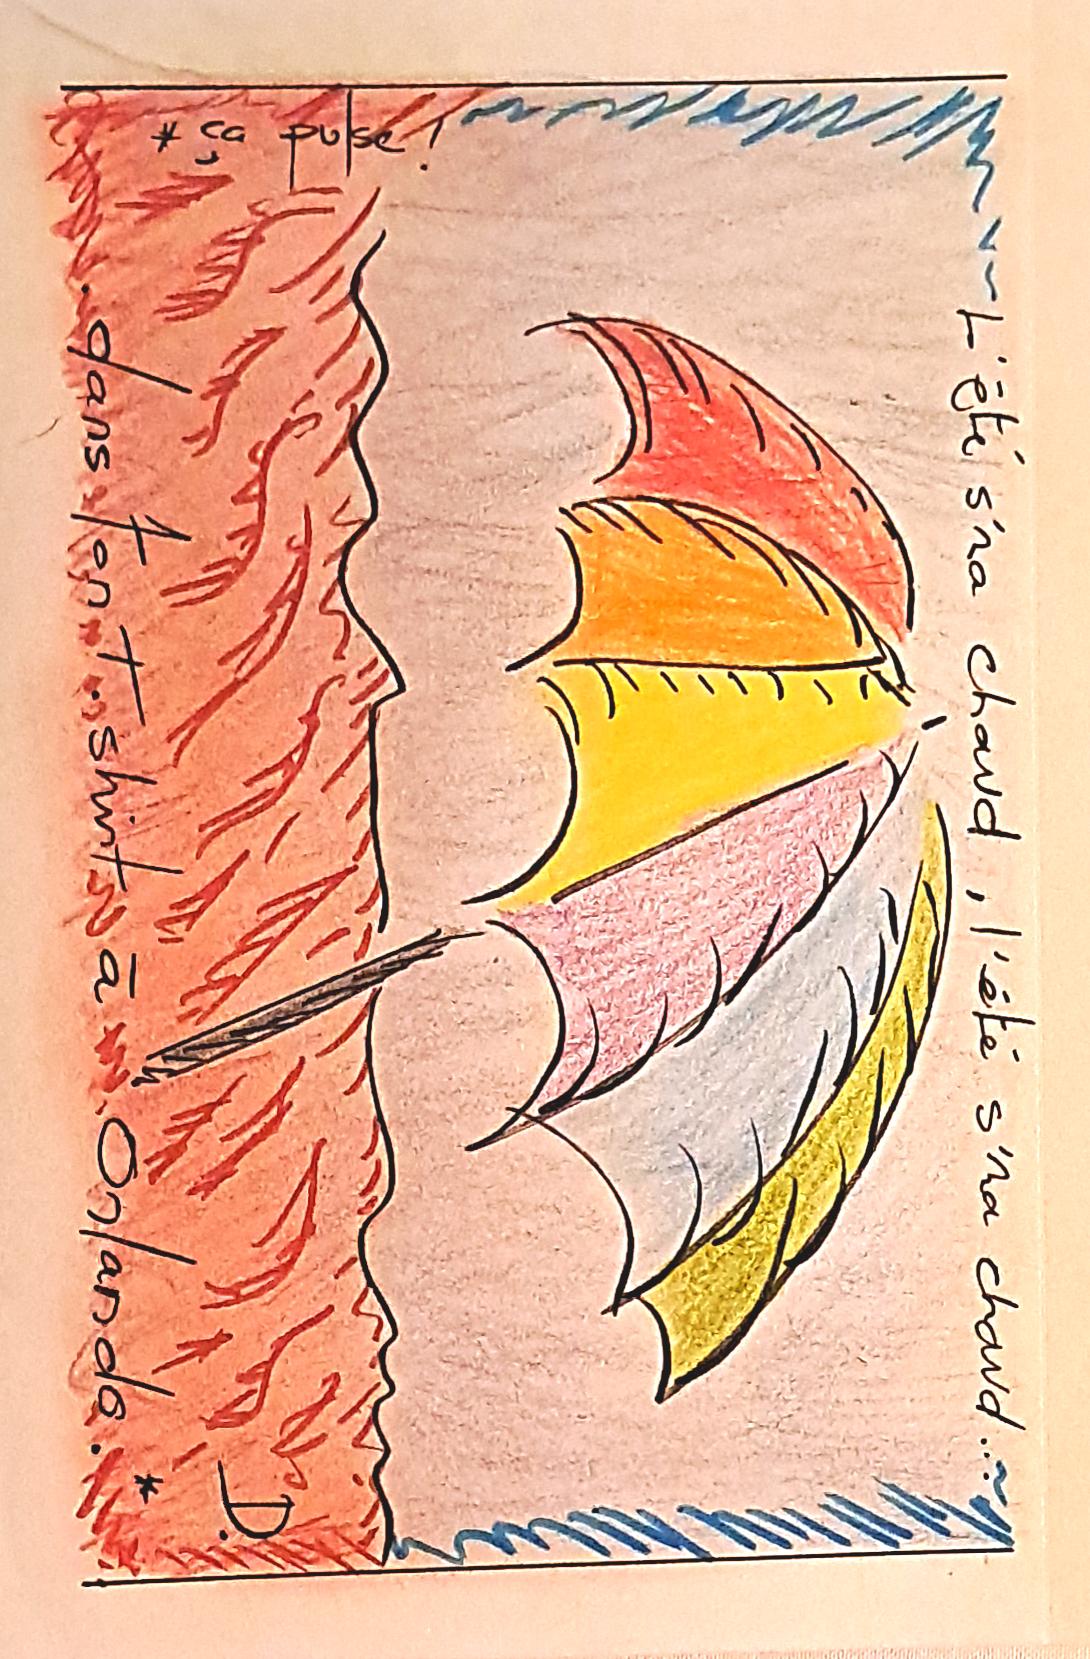 L'été s'ra chaud, l'été s'ra chaud...
.dans.ton.t.shirt.à.Orlando.*
D.
* ça pulse !